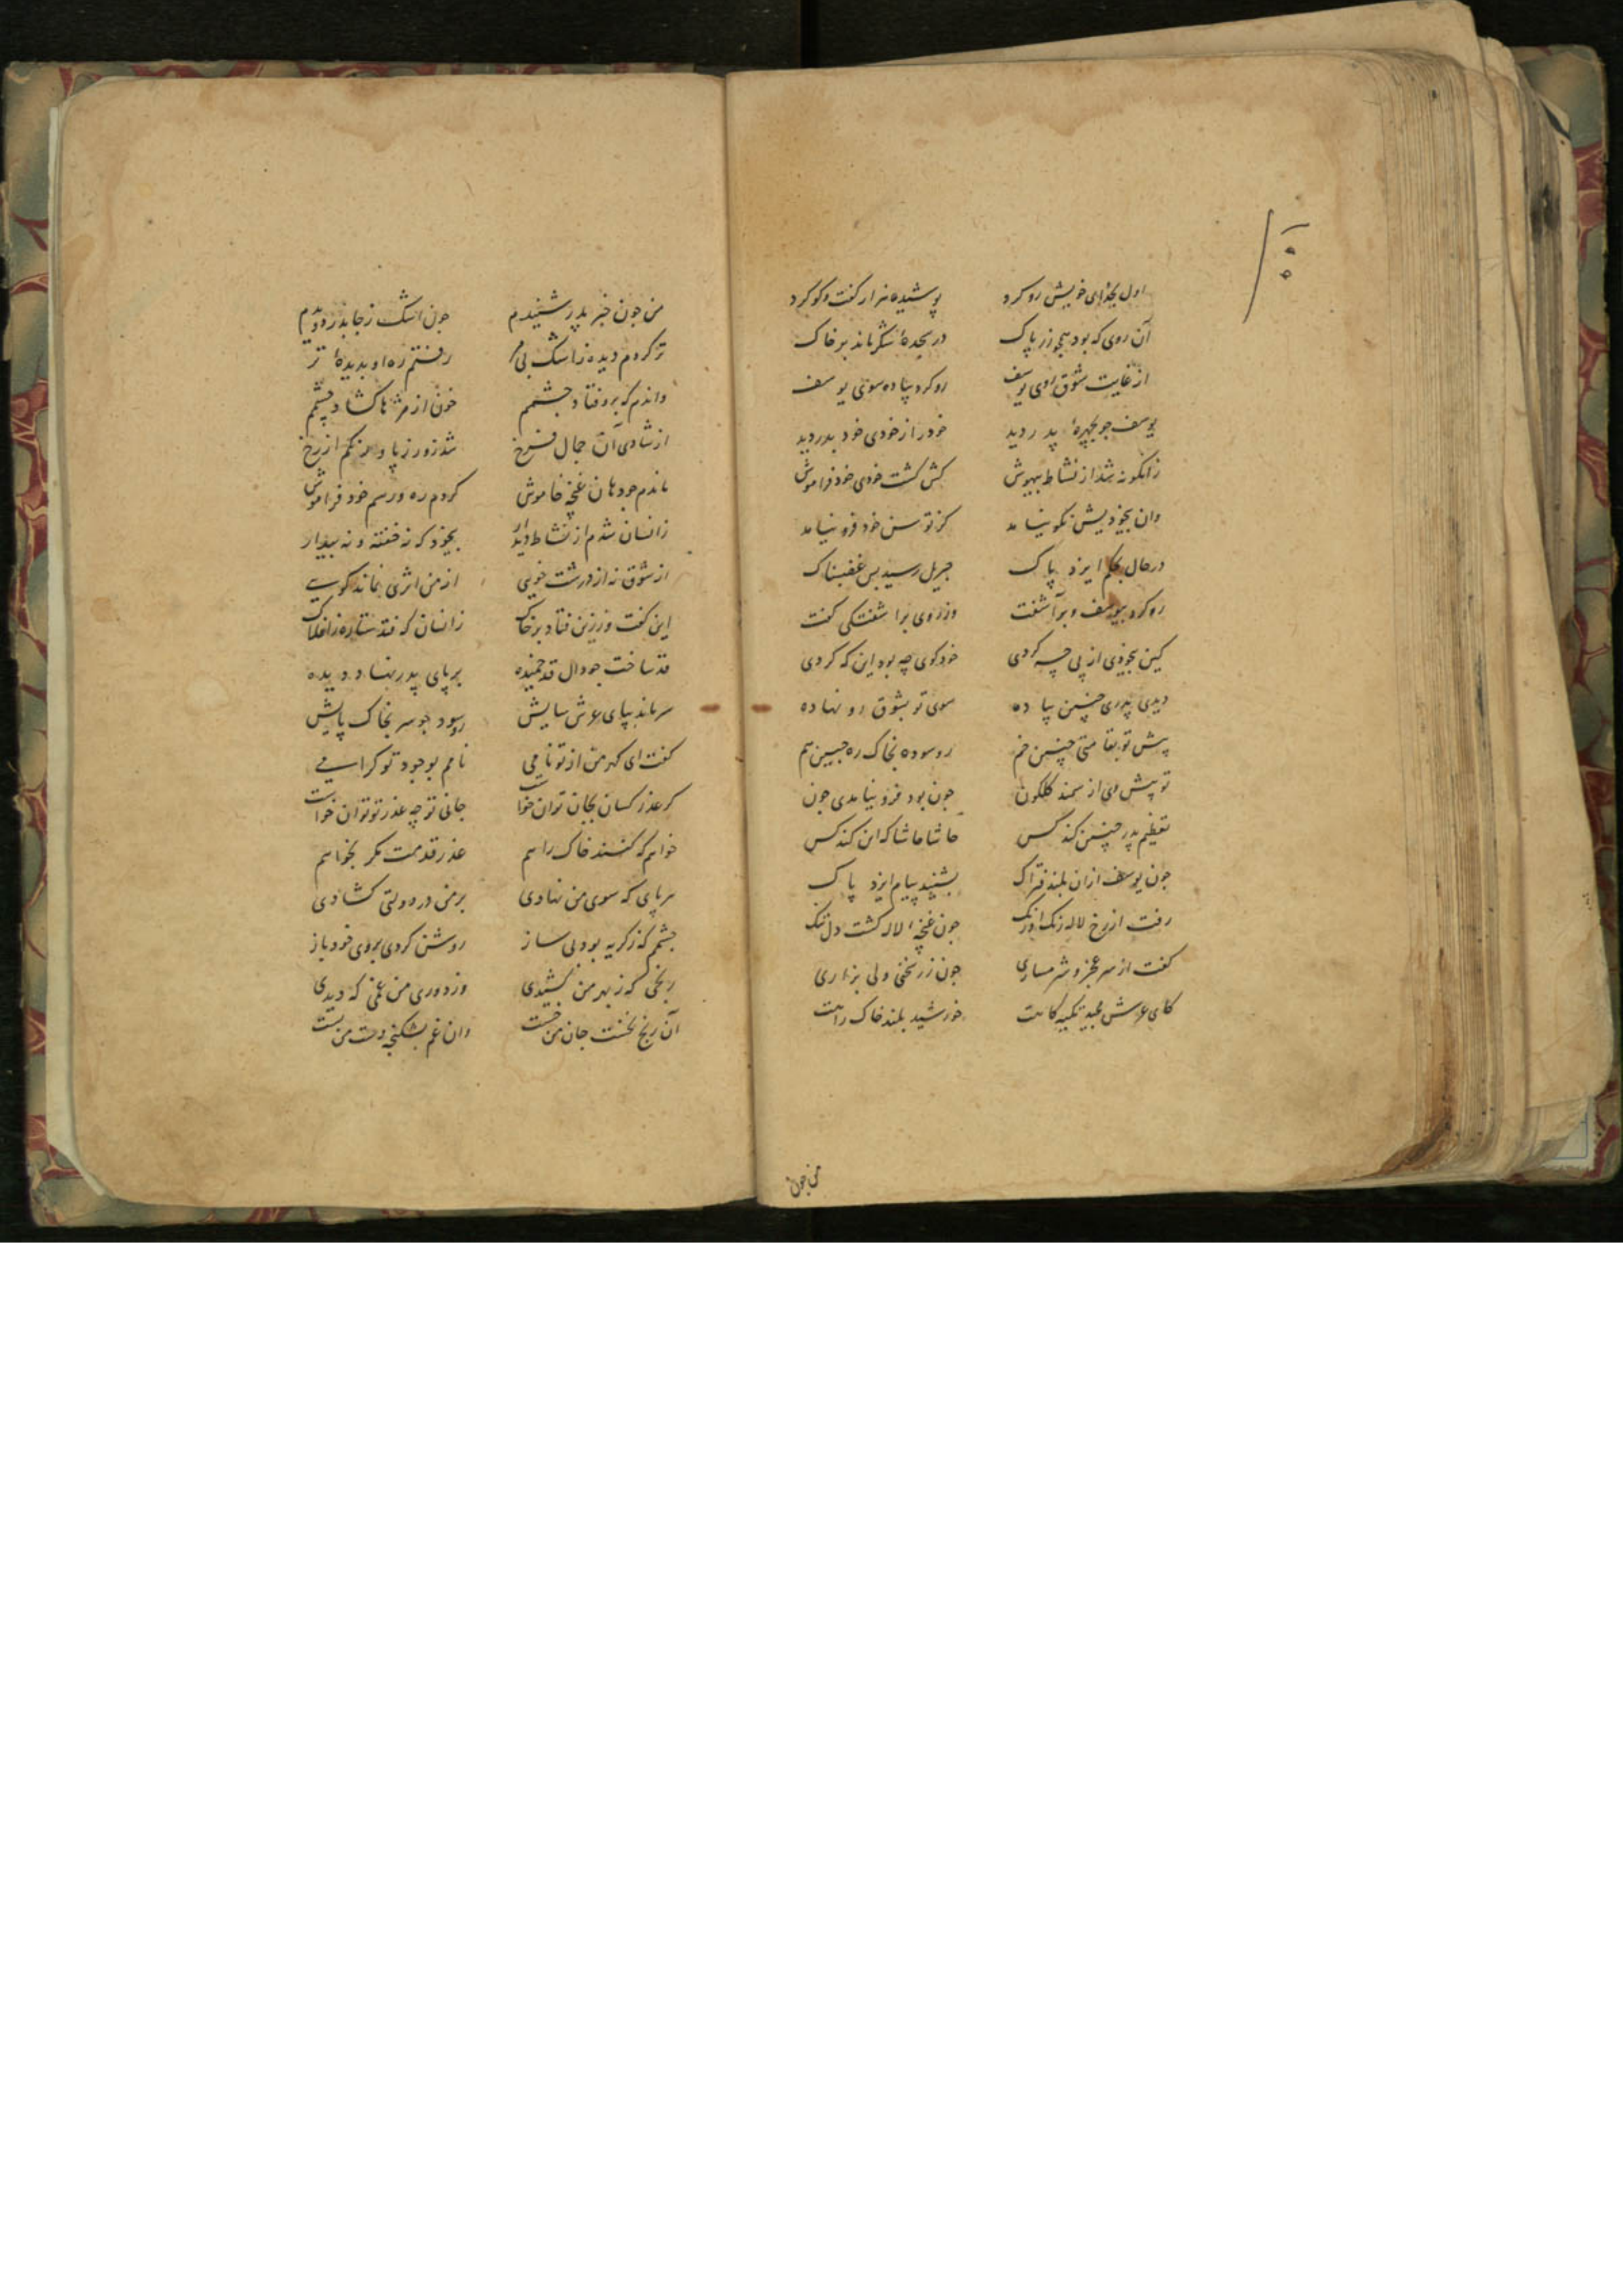 اول بخدای خویش رو کرد پوشیده هزار گفت و کو کرد
آن روی که بود همچو زر پاک در سجدهٔ شکر ماند بر خاک
از غایت شوق روی یوسف رو کرد پیاده سوی یوسف
یوسف جو بچهرهٔ پدر دید خود را از خودی خود بدر دید
زانکونه شد از نشاط بیهوش کش کشت خودی خود فراموش
وان بیخودیش نکو نیامد کز توسن خود فرو نیامد
در حال بحکم ایزد پاک جبریل رسید بس غضبناک
رو کرد بیوسف و برآشفت وز روی برآشفتکی کفت
کین بیخودی از پی چه کردی خود کوی چه بود این که کردی
دیدی پدری چنین پیاده سوی تو بشوق رو نهاده
پیش تو بقامتی چنین خم رو سوده بخاک ره جبین هم
تو پیش وی از سمند کلکون جون بود فرو نیامدی جون
تعظیم پدر چنین کند کس حاشا حاشا که این کند کس
جون یوسف ازان بلند فتراک بشنید پیام ایزد پاک
رفت از رخ لاله رنک او رنک جون غنچهٔ لاله کشت دل تنک
کفت از سر عجز و شرمساری جون زر نخنی ولی بزاری
کای عرش مجید تکیه کاهت خورشید بلند خاک راهت
من جون
من جون خبر پدر شنیدم جون اشک ز جا بدر دویدم
تر کردم دیده ز اشک بی مر رفتم ره او بدیدهٔ تر
واندم که برو فتاد جشمم خون از مژها کشاد چشمم
از شادی آن جمال فرخ شد زور ز پا و رنکم از رخ
ماندم جو دهان غنچه خاموش کردم ره و رسم خود فراموش
زانسان شدم از نشاط دیدار بیخود که نه خفته و نه بیدار
از شوق نه از درشت خویی از من اثری نماند کویی
این کفت و ز زین فتاد بر خاک زانسان که فتد ستاره ز افلاک
قد ساخت جو دال قد خمیده بر پای پدر نهاد دیده
سر ماند بپای عرش سایش رو سود جو سر بخاک پایش
کفت ای کهر من از تو نامی نامم بوجود تو کرامی
کر عذر کسان بجان توان خواست جانی تو چه عذر تو توان خواست
خواهم که کنند خاک راهم عذر قدمت مکر بخواهم
هر پای که سوی من نهادی بر من در دولتی کشادی
جشمم که ز کریه بود بی ساز روشن کردی بروی خود باز
رنجی که ز بهر من کشیدی وز دوری من غمی که دیدی
آن رنج نخست جان من خست وان غم بشکنجه دست من بست